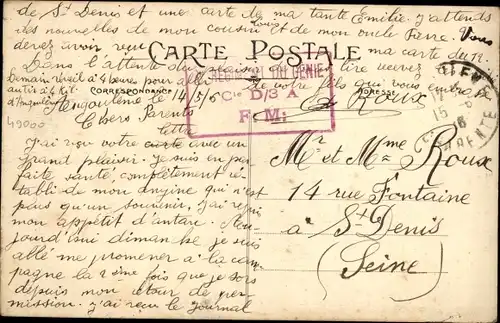 de St Denis et une carte de ma tante Emilie. J'attends
des nouvelles de mon cousin Louis et de mon oncle Pierre. Vous
devez avoir reçu ma carte du 12.
CARTE POSTALE
Dans l'attente du plaisir de vous lire recevez
Demain réveil à 4 heures pour aller
de votre fils qui vous embrasse
E. Roux
CORRESPONDANCE
ADRESSE
Angoulême le 14/5/16
Chers Parents
J'ai reçu votre lettre carte avec un
grand plaisir. Je suis en par-
faite santé, complètement ré-
tabli de mon dingue ce n'est
plus qu'un souvenir, j'ai repris
mon appétit d'antan. Au-
jourd'hui dimanche je suis
allé me promener à la cam-
pagne la 2ième fois que je sors
depuis mon retour de per-
mission. J'ai reçu le journal
49000
DU GÉNIE
Cie D/3 A
F. M.
15
16
Mr et Mme Roux
14 rue Fontaine
à St Denis
(Seine)